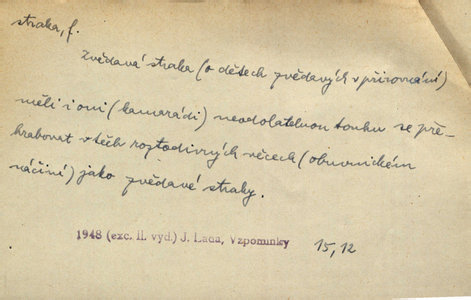 straka, f.
Zvědavá straka (o dětech zvědavých v přirovnání)
měli i oni (kamarádi) neodolatelnou touhu se pře-
hrabovat v těch roztodivných věcech (obuvnickém
náčiní) jako zvědavé straky.
1948 (exc. II. vyd.) J. Lada, Vzpomínky 15,12